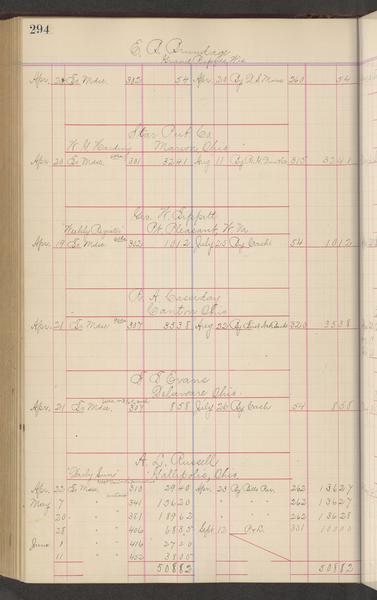 294
E. B. Brundage
Grand Rapids, Wis
Apr. 20 To Mdse. 312 54 Apr. 20 By 260 54
Star Pub Co
W. G. Harding Marion Ohio
Apr. 20 To Mdse. 301 3241 Aug 11 By 315 3241
Geo. W. Tippett
"Weekly Register" Pt. Pleasant W. Va.
Apr. 19 To Mdse 312 1012 July 25 By Cash 54 1012
R. A. Cassiday
Canton Ohio
Apr. 21 To Mdse 307 3538 Aug 22 By 320 3538
Evans
Delaware Ohio.
Apr. 21 To Mdse. 307 858 July 26 By Cash 54 858
A. L. Russell
"Daily Sun" Gallipolis, Ohio.
Apr. 22 To Mdse 313 2940 Apr. 23 By Bills Rec. 262 13627
May 7 " " 341 13620 " " " " 262 13627
20 " " 381 18962 " " " " 262 13628
28 " " 406 6835 Sept. 12 P & L 331 10000
June 1 " " 414 2720
11 " " 432 3805
50882 50882